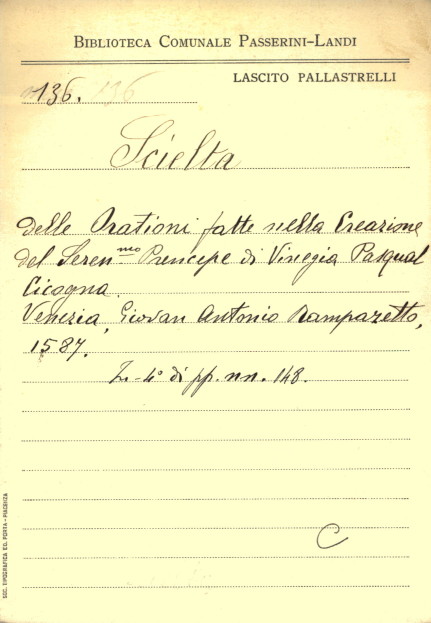 BIBLIOTECA COMUNALE PASSERINI-LANDI
LASCITO PALLASTRELLI
136. 136
Scielta
delle Orationi fatte nella Creazione
del Seren.mo Prencipe di Vinegia Pasqual
Cicogna.
Venezia, Giovan Antonio Rampazetto,
1587.
in-4° di pp. nn. 148.
C
SOC. TIPOGRAFICA ED. PORTA - PIACENZA